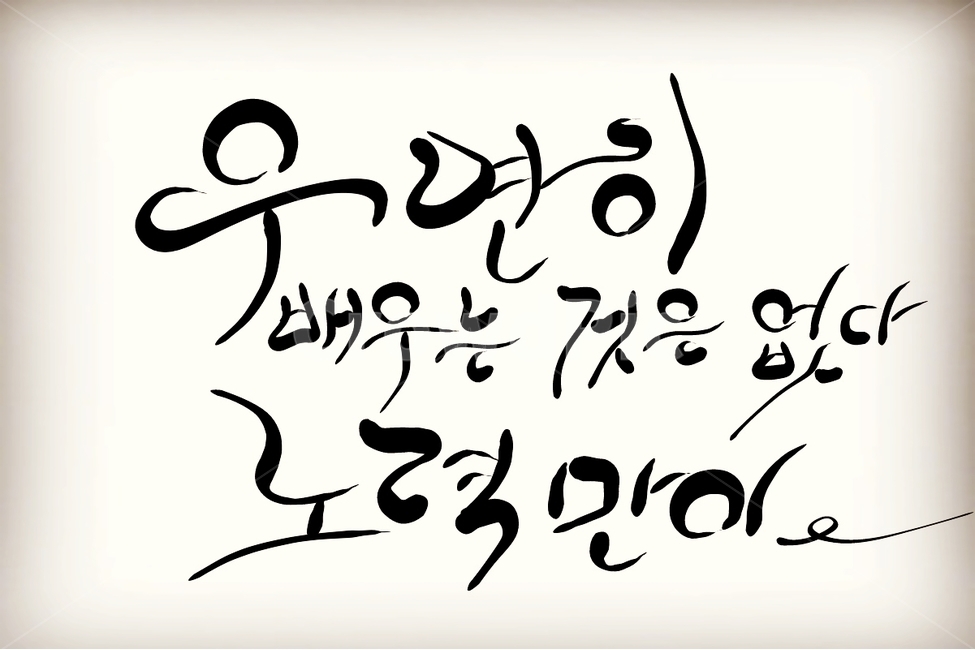 우연히
배우는 것은 없다
노력만이